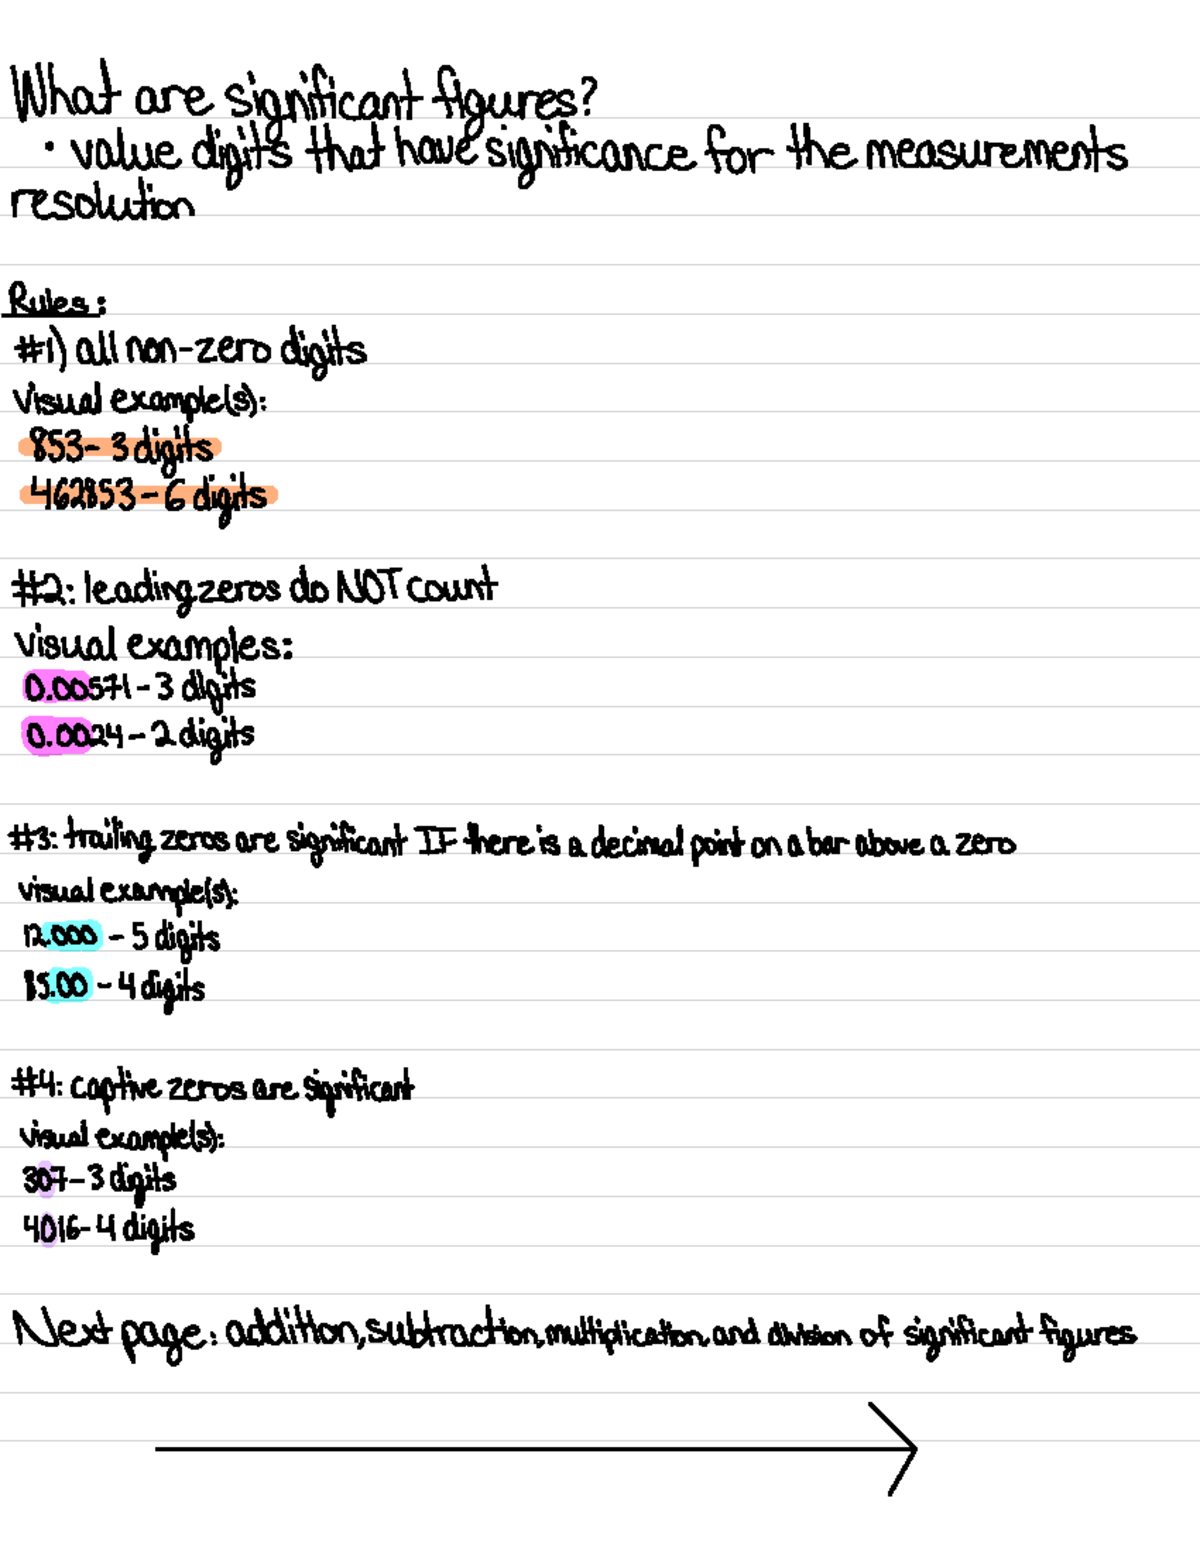 What are significant figures?
• value digits that have significance for the measurements
resolution
Rules:
#1) all non-zero digits
Visual example(s):
853- 3 digits
462853-6 digits
#2: leading zeros do NOT count
visual examples:
0.00571-3 digits
0.0024-2 digits
#3: trailing zeros are significant IF there is a decimal point on a bar above a zero
visual example(s):
12.000 - 5 digits
85.00 - 4 digits
#4: captive zeros are significant
visual example(s):
307-3 digits
4016-4 digits
Next page: addition, subtraction, multiplication, and division of significant figures